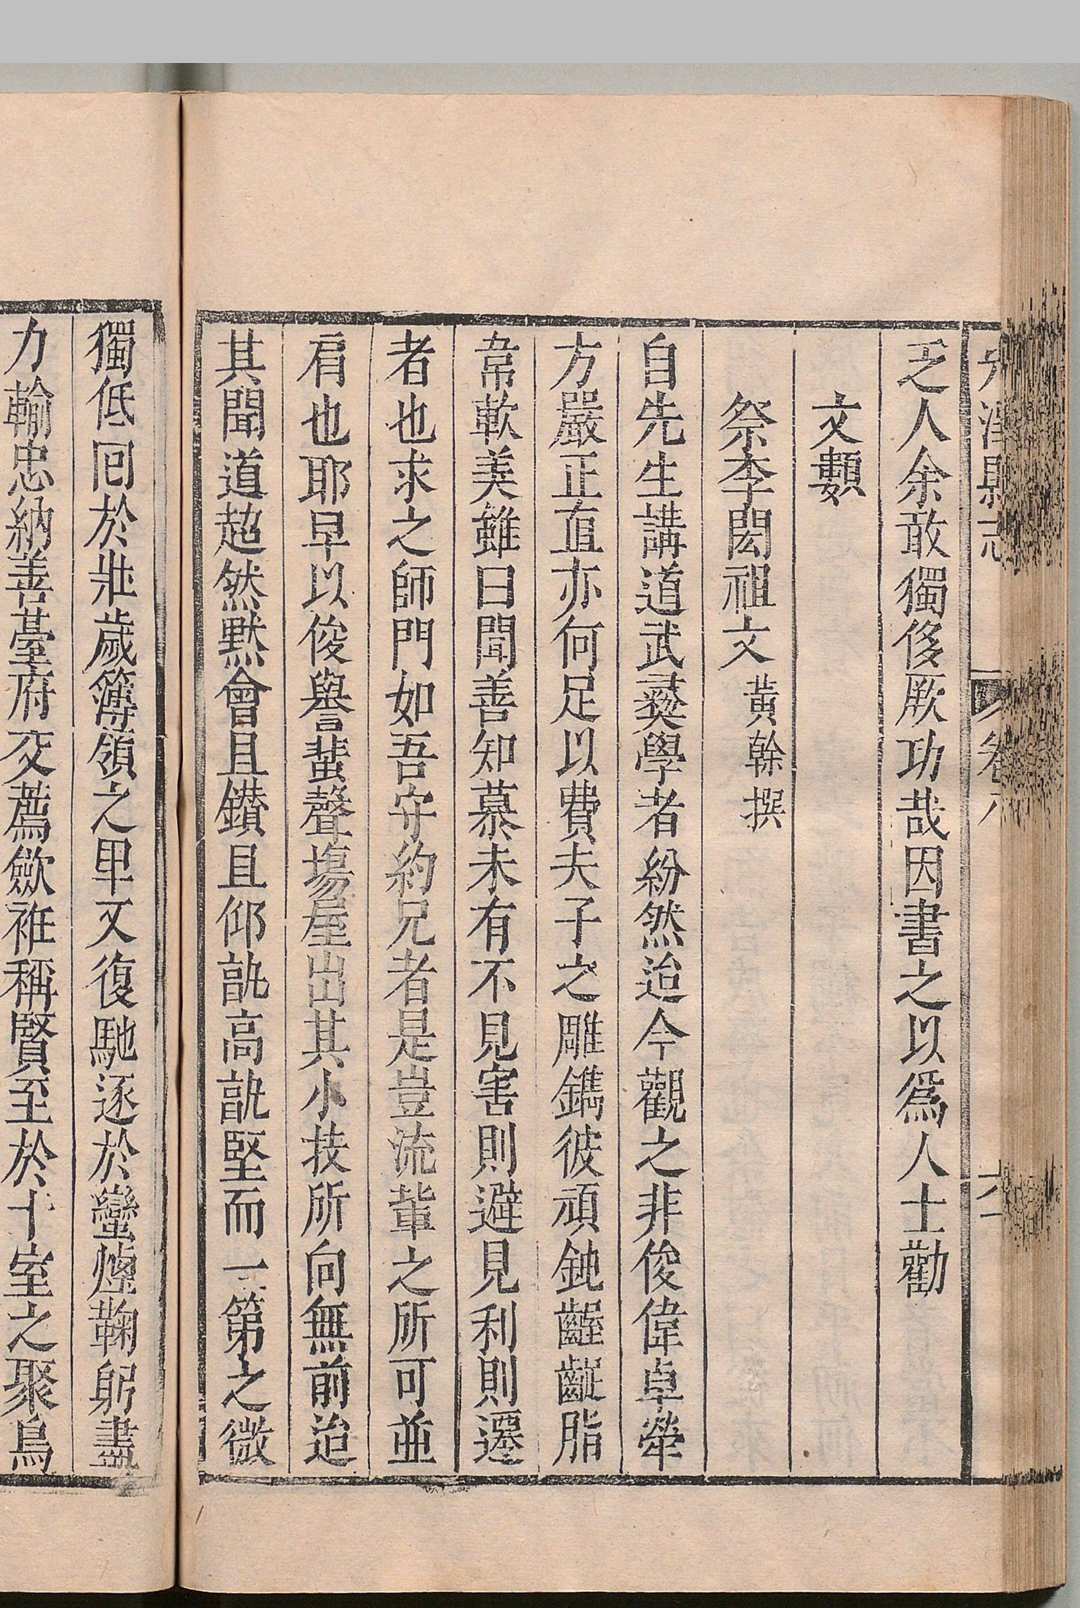 澤縣志
卷八
乏人余敢獨侈厥功哉因書之以爲人士勸
文類
祭李閎祖文 黃榦撰
自先生講道武彞學者紛然迨今觀之非俊偉卓犖
方嚴正直亦何足以費夫子之雕鐫彼頑鈍齷齪脂
韋軟美雖日聞善知慕未有不見害則避見利則遷
者也求之師門如吾守約兄者是豈流輩之所可並
肩也耶早以俊譽蜚聲塲屋出其小技所向無前迨
其聞道超然黙會且鑚且仰訛高訛堅而一第之微
獨低囘於壯歲簿領之卑又復馳逐於蠻煙鞠躬盡
力輸忠納善臺府交薦歛袵稱賢至於十室之聚鳥